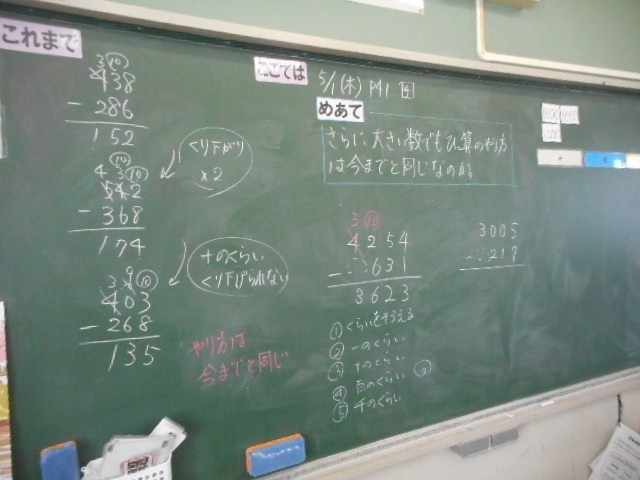 これまで
3⑩
438
-286
152
くり下がり
×2
4 3⑩
542
-368
174
十のくらい
くり下げられない
3 9⑩
403
-268
135
やり方は
今までと同じ
ここでは
5/1(木) P41 4
めあて
さらに大きい数でもひき算のやり方
は今までと同じなのか。
3⑩
4254
-631
3623
①くらいをそろえる
②一のくらい
③十のくらい
④百のくらい
⑤千のくらい
3005
-217